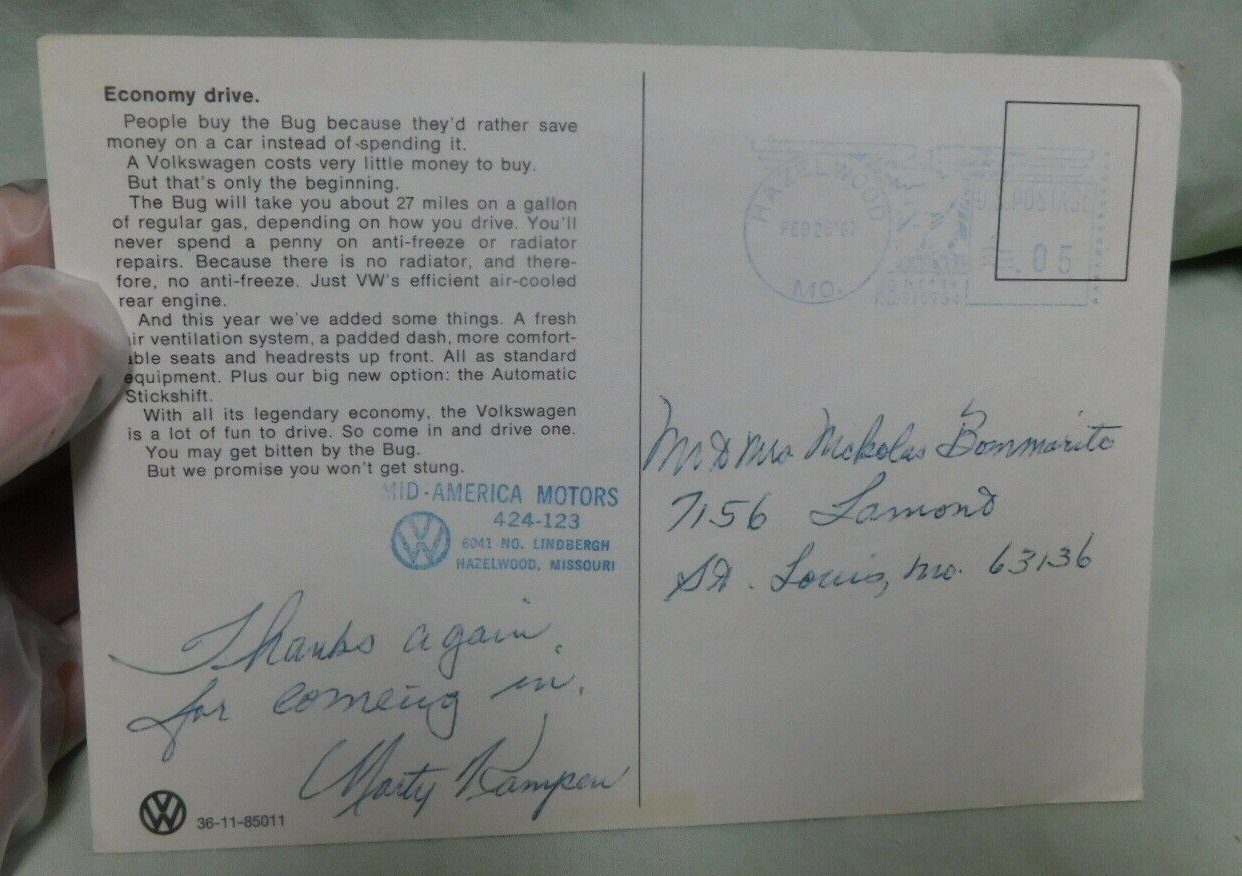 Economy drive.
People buy the Bug because they'd rather save
money on a car instead of spending it.
A Volkswagen costs very little money to buy.
But that's only the beginning.
The Bug will take you about 27 miles on a gallon
of regular gas, depending on how you drive. You'll
never spend a penny on anti-freeze or radiator
repairs. Because there is no radiator, and there-
fore, no anti-freeze. Just VW's efficient air-cooled
rear engine.
And this year we've added some things. A fresh
ir ventilation system, a padded dash, more comfort-
able seats and headrests up front. All as standard
equipment. Plus our big new option: the Automatic
Stickshift.
With all its legendary economy, the Volkswagen
is a lot of fun to drive. So come in and drive one.
You may get bitten by the Bug.
But we promise you won't get stung.
MID-AMERICA MOTORS
424-123
6041 NO. LINDBERGH
HAZELWOOD, MISSOURI
Thanks again
for coming in.
Marty Kampen
VW 36-11-85011
HAZELWOOD
FEB 26
MO.
.05
Mr & Mrs Bommarito
7156 Lamond
St. Louis, Mo. 63136